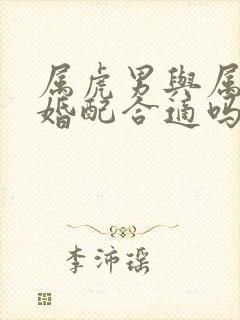 属虎男與属
婚配合适吗
李沛瑶